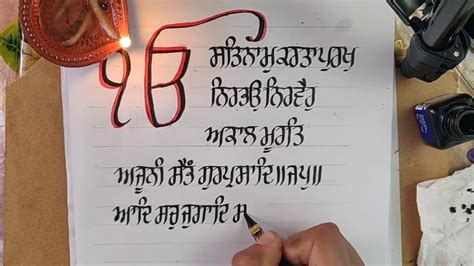 ੴ ਸਤਿਨਾਮੁ ਕਰਤਾ ਪੁਰਖੁ
ਨਿਰਭਉ ਨਿਰਵੈਰੁ
ਅਕਾਲ ਮੂਰਤਿ
ਅਜੂਨੀ ਸੈਭੰ ਗੁਰਪ੍ਰਸਾਦਿ॥ਜਪੁ॥
ਆਦਿ ਸਚੁ ਜੁਗਾਦਿ ਸ